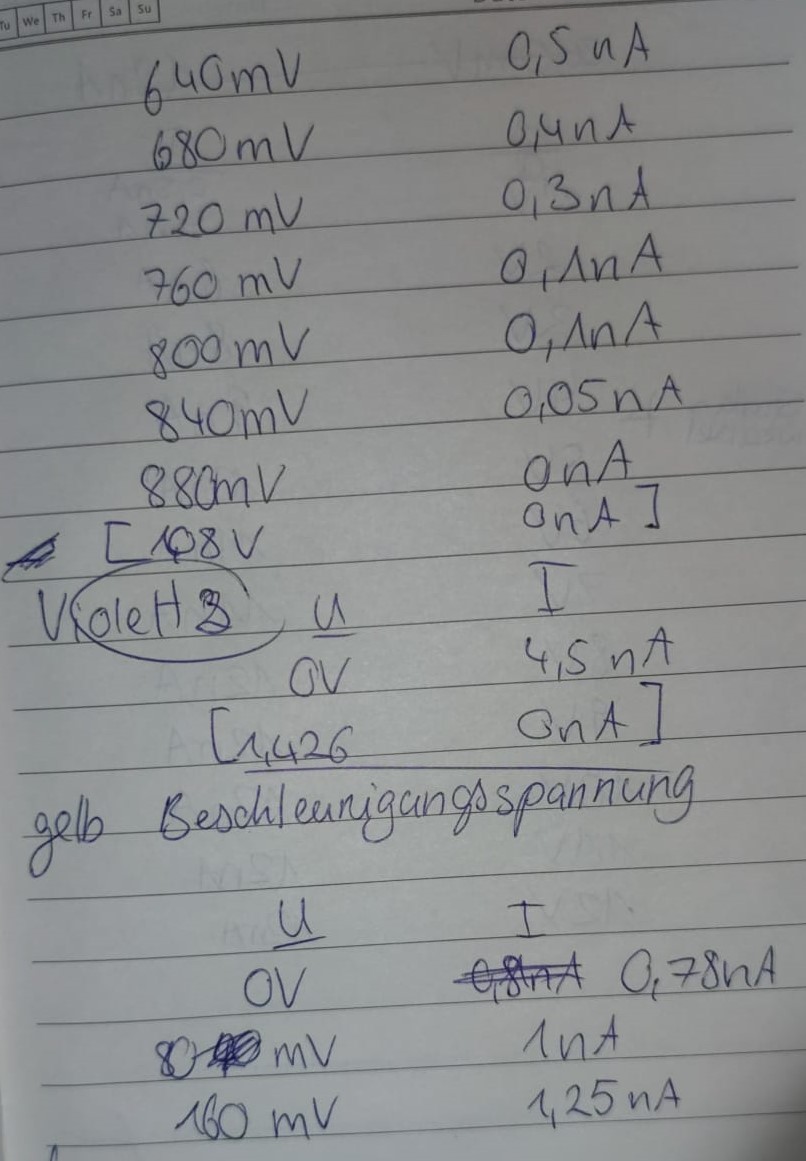 Tu We Th Fr Sa Su
640mV 0,5 nA
680mV 0,4nA
720 mV 0,3nA
760 mV 0,1nA
800mV 0,1nA
840mV 0,05nA
880mV 0nA
[108V 0nA]
Violett 3 U I
0V 4,5 nA
[1,426 0nA]
gelb Beschleunigungsspannung
U I
0V 0,8nA 0,78nA
80 mV 1nA
160 mV 1,25nA